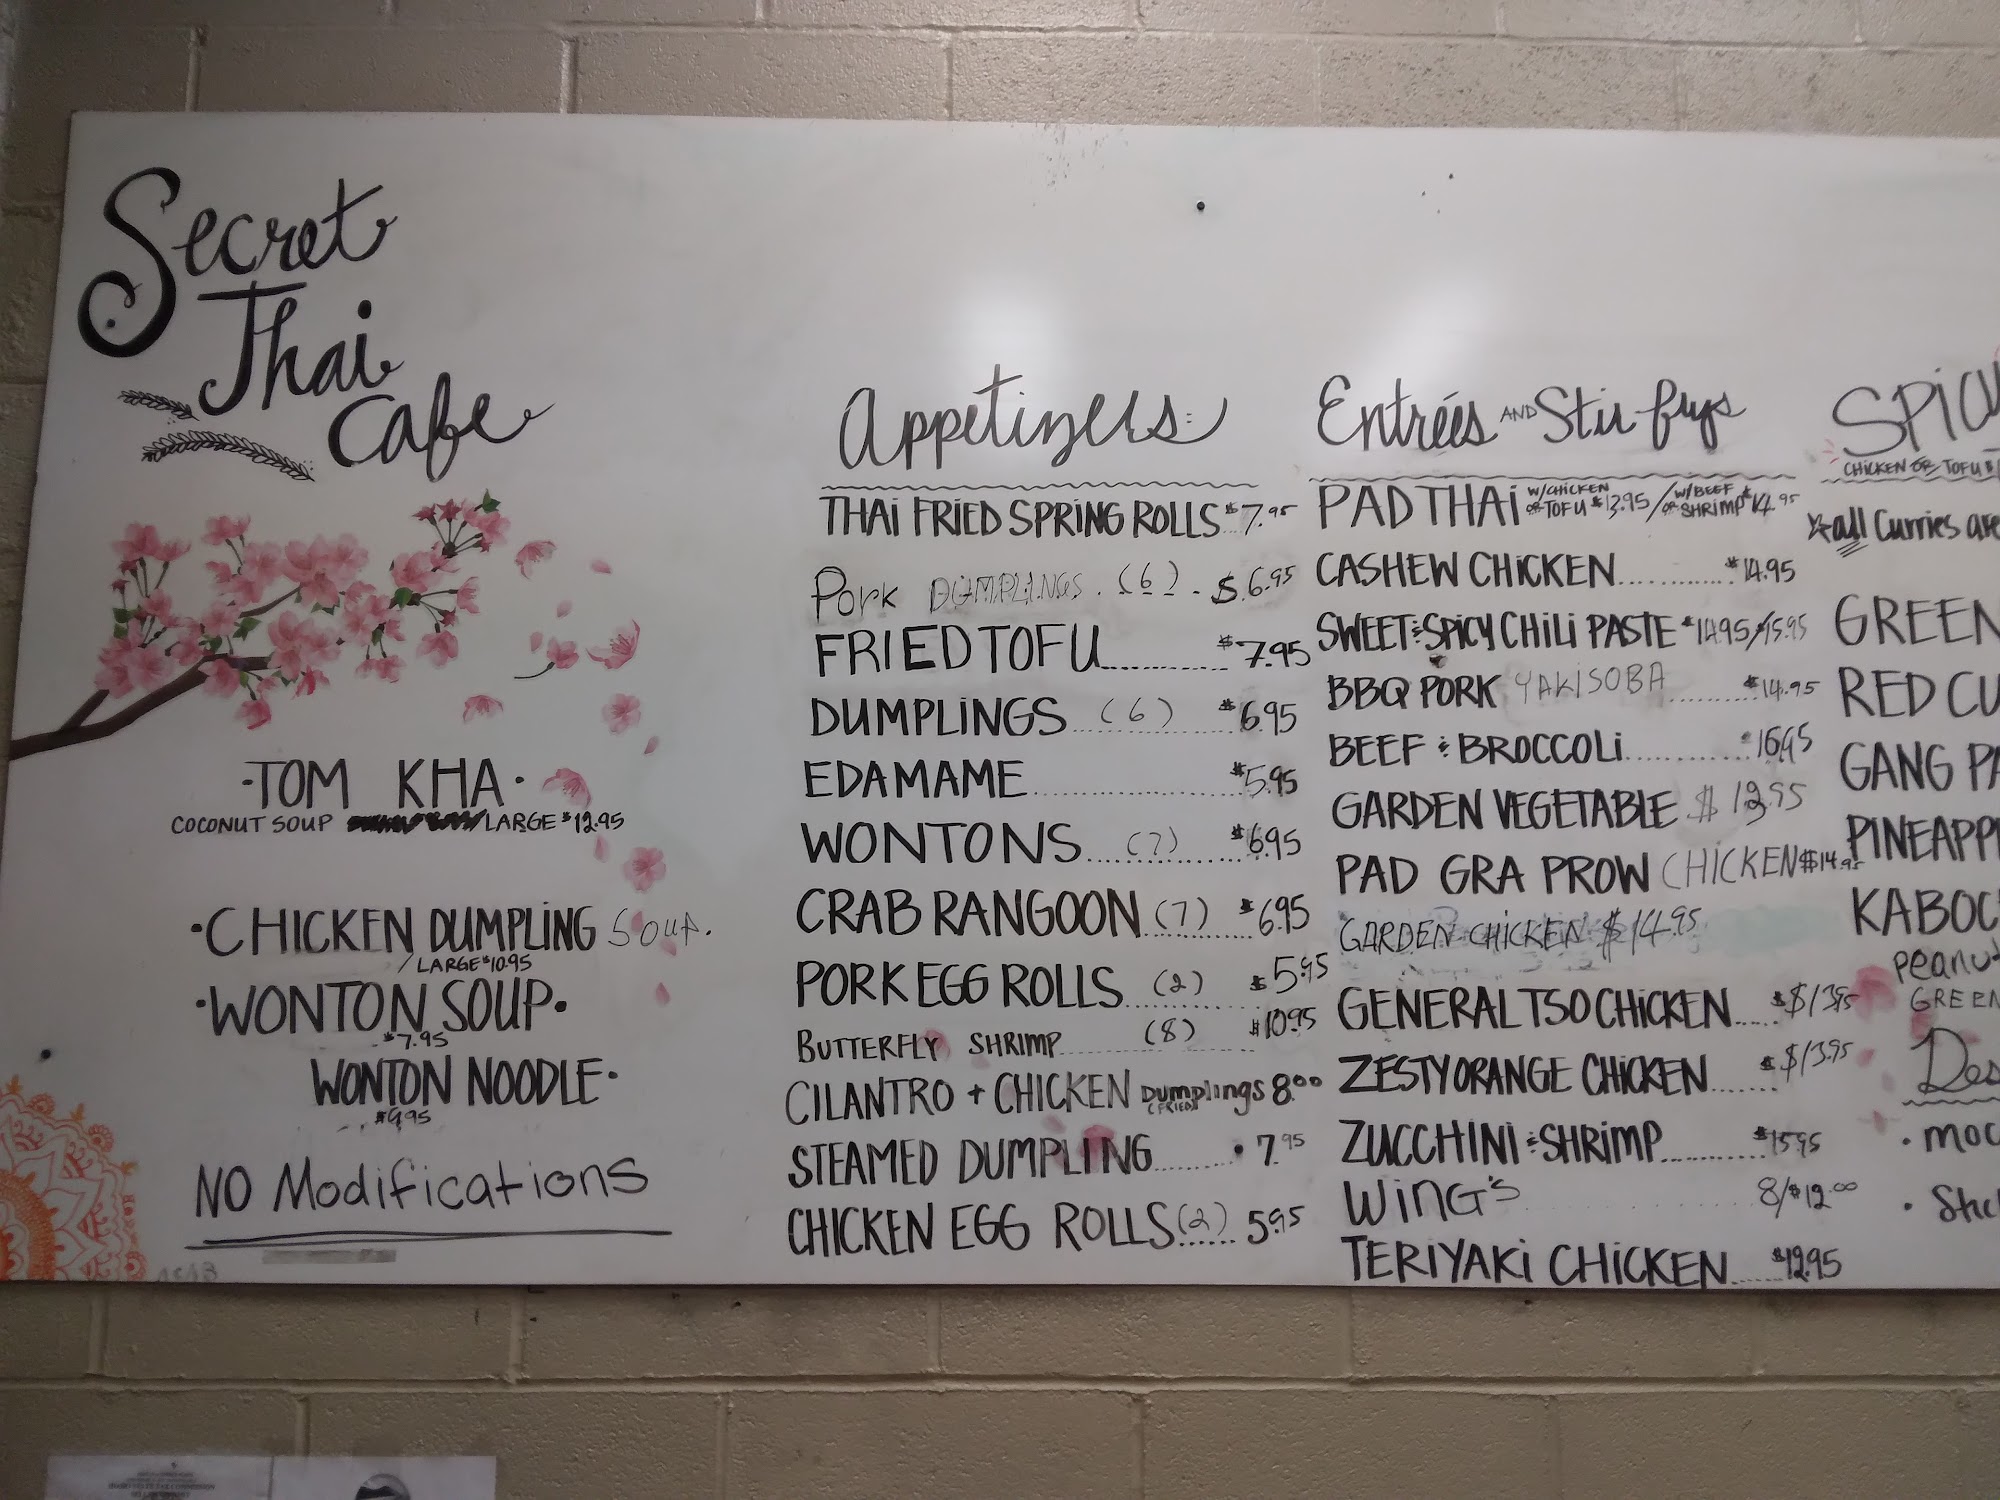 Secret
Thai
Cafe
·TOM KHA·
COCONUT SOUP LARGE $12.95
·CHICKEN DUMPLING SOUP.
/LARGE $10.95
·WONTON SOUP·
$7.95
WONTON NOODLE·
$9.95
NO Modifications
Appetizers:
THAI FRIED SPRING ROLLS $7.95
Pork DUMPLINGS . (6) - $6.95
FRIED TOFU........ $7.95
DUMPLINGS...(6)... $6.95
EDAMAME............ $5.95
WONTONS....(7)..... $6.95
CRAB RANGOON (7) $6.95
PORK EGG ROLLS...(2)... $5.95
BUTTERFLY SHRIMP......(8) $10.95
CILANTRO + CHICKEN Dumplings 8.00
(FRIED)
STEAMED DUMPLING........ • 7.95
CHICKEN EGG ROLLS (2) 5.95
Entrées AND Stir-frys
PAD THAI W/CHICKEN OR TOFU $13.95 / W/BEEF OR SHRIMP $14.95
CASHEW CHICKEN........... $14.95
SWEET & SPICY CHILI PASTE $14.95/15.95
BBQ PORK YAKISOBA....... $14.95
BEEF & BROCCOLI........... $16.95
GARDEN VEGETABLE $13.95
PAD GRA PROW CHICKEN $14.95
GARDEN CHICKEN $14.95
GENERAL TSO CHICKEN..... $ $13.95
ZESTY ORANGE CHICKEN...... $ $13.95
ZUCCHINI & SHRIMP.......... $15.95
WiNG's .......... 8/$12.00
TERIYAKI CHICKEN..... $12.95
SPICY
CHICKEN OR TOFU $
☆all Curries are
GREEN
RED CU
GANG PA
PINEAPP
KABOC
Peanut
GREEN
Des
· MOC
· Stic